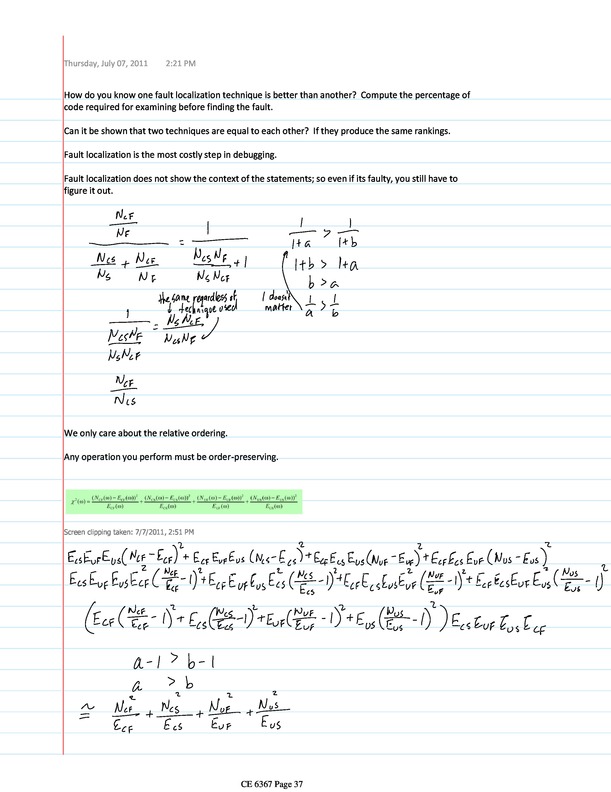 Thursday, July 07, 2011 2:21 PM
How do you know one fault localization technique is better than another? Compute the percentage of
code required for examining before finding the fault.
Can it be shown that two techniques are equal to each other? If they produce the same rankings.
Fault localization is the most costly step in debugging.
Fault localization does not show the context of the statements; so even if its faulty, you still have to
figure it out.
(N_CF/N_F) / (N_CS/N_S + N_CF/N_F) = 1 / (N_CS N_F/N_S N_CF + 1)
1/(1+a) > 1/(1+b)
1+b > 1+a
b > a
1 doesn't matter
1/a > 1/b
the same regardless of technique used
1 / (N_CS N_F/N_S N_CF) = N_S N_CF / N_CS N_F
N_CF / N_CS
We only care about the relative ordering.
Any operation you perform must be order-preserving.
χ²(ω) = (N_CF(ω) − E_CF(ω))²/E_CF(ω) + (N_CS(ω) − E_CS(ω))²/E_CS(ω) + (N_UF(ω) − E_UF(ω))²/E_UF(ω) + (N_US(ω) − E_US(ω))²/E_US(ω)
Screen clipping taken: 7/7/2011, 2:51 PM
E_CS E_UF E_US (N_CF − E_CF)² + E_CF E_UF E_US (N_CS − E_CS)² + E_CF E_CS E_US (N_UF − E_UF)² + E_CF E_CS E_UF (N_US − E_US)²
E_CS E_UF E_US E_CF² (N_CF/E_CF − 1)² + E_CF E_UF E_US E_CS² (N_CS/E_CS − 1)² + E_CF E_CS E_US E_UF² (N_UF/E_UF − 1)² + E_CF E_CS E_UF E_US² (N_US/E_US − 1)²
(E_CF (N_CF/E_CF − 1)² + E_CS (N_CS/E_CS − 1)² + E_UF (N_UF/E_UF − 1)² + E_US (N_US/E_US − 1)²) E_CS E_UF E_US E_CF
a − 1 > b − 1
a > b
≅ N_CF²/E_CF + N_CS²/E_CS + N_UF²/E_UF + N_US²/E_US
CE 6367 Page 37